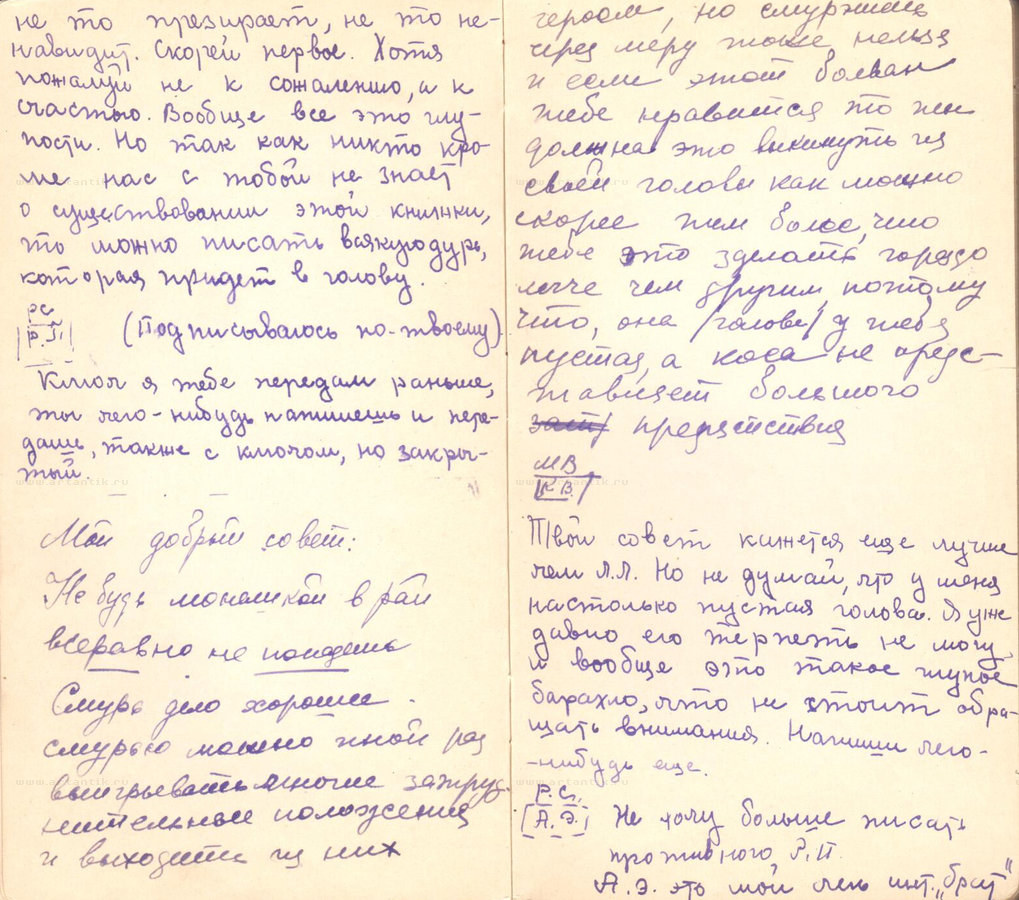 не то презирает, не то не-
навидит. Скорей первое. Хотя
пожалуй не к сожалению, а к
счастью. Вообще все это глу-
пости. Но так как никто кро-
ме нас с тобой не знает
о существовании этой книжки,
то можно писать всякую дурь,
которая придет в голову.
РС
(Подписываюсь по-твоему)
Ключ я тебе передам раньше,
ты чего-нибудь напишешь и пере-
дашь, также с ключом, но закры-
тый.
Мой добрый совет:
Не будь монашкой в рай
всеравно не попадешь
Смурь дело хорошее.
смурью можно иной раз
выигрывать многие затруд-
нительные положения
и выходить из них
героем, но смуржить
через меру тоже нельзя
и если этот болван
тебе нравится то ты
должна это выкинуть из
своей головы как можно
скорее тем более, что
тебе это зделать гораздо
легче чем другим, потому
что, она /голова/ у тебя
пустая, а коса не предс-
тавляет большого
препятствия
МВ
К В.
Твой совет кажется еще лучше
чем Л.Л. Но не думай, что у меня
настолько пустая голова. Я уже
давно его терпеть не могу,
и вообще это такое глупое
барахло, что не стоит обра-
щать внимания. Напиши чего-
-нибудь еще.
Р.С.
А.Э.
Не хочу больше писать
противного Р.П.
А.Э. это мой лен инт. „брат"
www.artantik.ru
www.artantik.ru
www.artantik.ru
www.artantik.ru
www.artantik.ru
www.artantik.ru